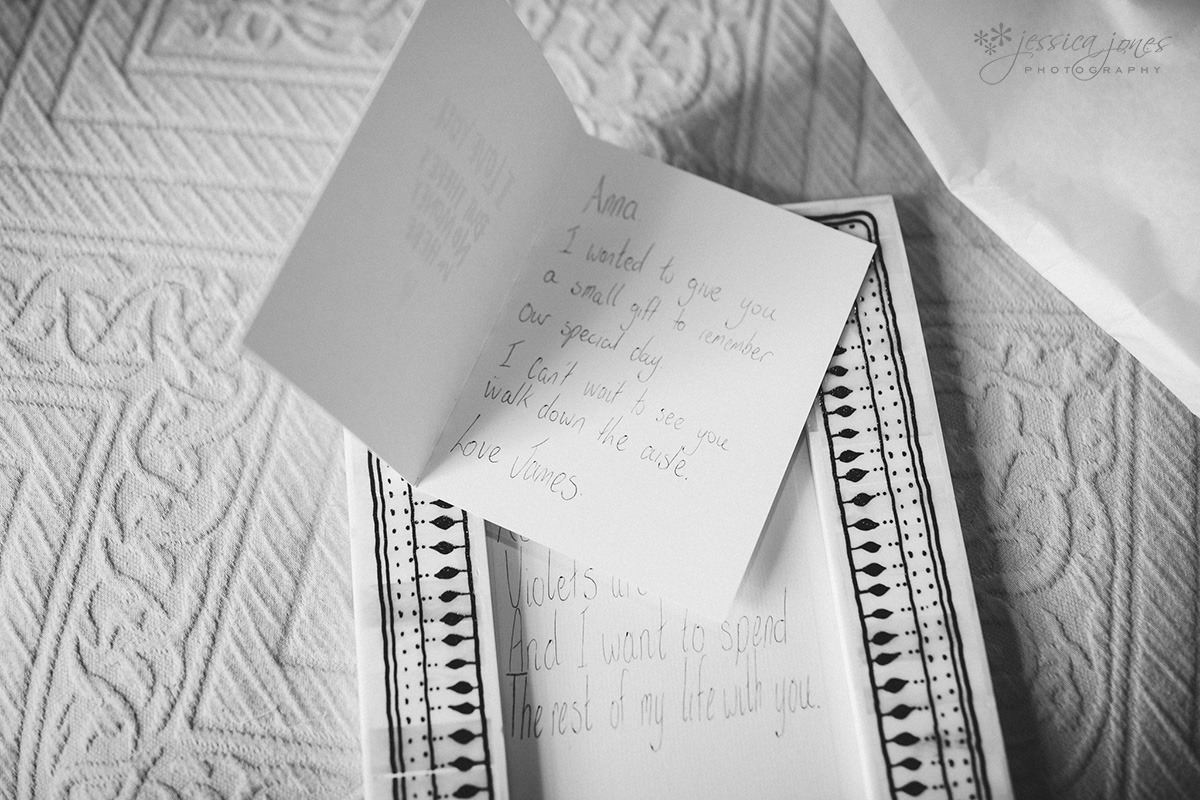 jessica jones
PHOTOGRAPHY
Anna
I wanted to give you
a small gift to remember
our special day.
I can't wait to see you
walk down the aisle.
Love James.
Violets
And I want to spend
The rest of my life with you.